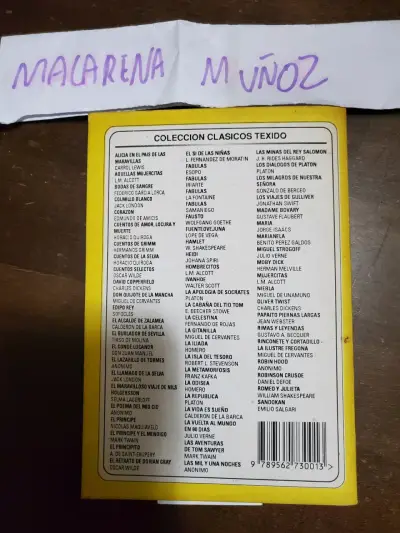 MACARENA MUÑOZ
COLECCION CLASICOS TEXIDO
ALICIA EN EL PAIS DE LAS
MARAVILLAS
CARROL LEWIS
AQUELLAS MUJERCITAS
L.M. ALCOTT
BODAS DE SANGRE
FEDERICO GARCIA LORCA
COLMILLO BLANCO
JACK LONDON
CORAZON
EDMUNDO DE AMICIS
CUENTOS DE AMOR, LOCURA Y
MUERTE
HORACIO QUIROGA
CUENTOS DE GRIMM
HERMANOS GRIMM
CUENTOS DE LA SELVA
HORACIO QUIROGA
CUENTOS SELECTOS
OSCAR WILDE
DAVID COPPERFIELD
CHARLES DICKENS
DON QUIJOTE DE LA MANCHA
MIGUEL DE CERVANTES
EDIPO REY
SOFOCLES
EL ALCALDE DE ZALAMEA
CALDERON DE LA BARCA
EL BURLADOR DE SEVILLA
TIRSO DE MOLINA
EL CONDE LUCANOR
DON JUAN MANUEL
EL LAZARILLO DE TORMES
ANONIMO
EL LLAMADO DE LA SELVA
JACK LONDON
EL MARAVILLOSO VIAJE DE NILS
HOLGERSSON
SELMA LAGERLOFF
EL POEMA DEL MIO CID
ANONIMO
EL PRINCIPE
NICOLAS MAQUIAVELO
EL PRINCIPE Y EL MENDIGO
MARK TWAIN
EL PRINCIPITO
A. DE SAINT-EXUPERY
EL RETRATO DE DORIAN GRAY
OSCAR WILDE
EL SI DE LAS NIÑAS
L. FERNANDEZ DE MORATIN
FABULAS
ESOPO
FABULAS
IRIARTE
FABULAS
LA FONTAINE
FABULAS
SAMANIEGO
FAUSTO
WOLFGANG GOETHE
FUENTEOVEJUNA
LOPE DE VEGA
HAMLET
W. SHAKESPEARE
HEIDI
JOHANA SPIRI
HOMBRECITOS
L.M. ALCOTT
IVANHOE
WALTER SCOTT
LA APOLOGIA DE SOCRATES
PLATON
LA CABAÑA DEL TIO TOM
E. BEECHER STOWE
LA CELESTINA
FERNANDO DE ROJAS
LA GITANILLA
MIGUEL DE CERVANTES
LA ILIADA
HOMERO
LA ISLA DEL TESORO
ROBERT L. STEVENSON
LA METAMORFOSIS
FRANZ KAFKA
LA ODISEA
HOMERO
LA REPUBLICA
PLATON
LA VIDA ES SUEÑO
CALDERON DE LA BARCA
LA VUELTA AL MUNDO
EN 80 DIAS
JULIO VERNE
LAS AVENTURAS
DE TOM SAWYER
MARK TWAIN
LAS MIL Y UNA NOCHES
ANONIMO
LAS MINAS DEL REY SALOMON
J. H. RIDES HAGGARD
LOS DIALOGOS DE PLATON
PLATON
LOS MILAGROS DE NUESTRA
SEÑORA
GONZALO DE BERCEO
LOS VIAJES DE GULLIVER
JONATHAN SWIFT
MADAME BOVARY
GUSTAVE FLAUBERT
MARIA
JORGE ISAACS
MARIANELA
BENITO PEREZ GALDOS
MIGUEL STROGOFF
JULIO VERNE
MOBY DICK
HERMAN MELVILLE
MUJERCITAS
L.M. ALCOTT
NIEBLA
MIGUEL DE UNAMUNO
OLIVER TWIST
CHARLES DICKENS
PAPAITO PIERNAS LARGAS
JEAN WEBSTER
RIMAS Y LEYENDAS
GUSTAVO A. BECQUER
RINCONETE Y CORTADILLO -
LA ILUSTRE FREGONA
MIGUEL DE CERVANTES
ROBIN HOOD
ANONIMO
ROBINSON CRUSOE
DANIEL DEFOE
ROMEO Y JULIETA
WILLIAM SHAKESPEARE
SANDOKAN
EMILIO SALGARI
9 789562 730013 >